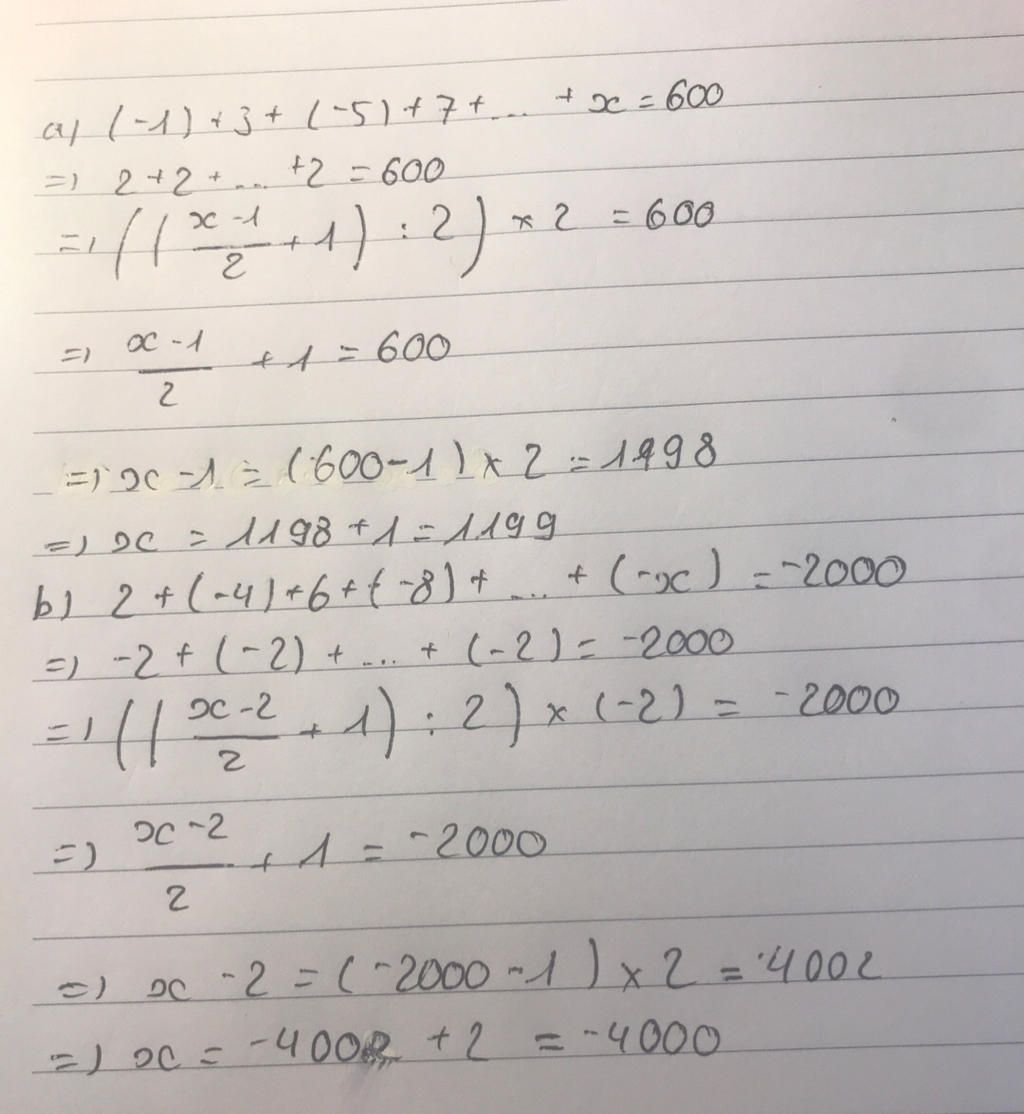 a) (-1) + 3 + (-5) + 7 + ... + x = 600
=> 2 + 2 + ... + 2 = 600
=> ((\frac{x-1}{2} + 1) : 2) × 2 = 600
=> \frac{x-1}{2} + 1 = 600
=> x - 1 = (600 - 1) × 2 = 1198
=> x = 1198 + 1 = 1199
b) 2 + (-4) + 6 + (-8) + ... + (-x) = -2000
=> -2 + (-2) + ... + (-2) = -2000
=> ((\frac{x-2}{2} + 1) : 2) × (-2) = -2000
=> \frac{x-2}{2} + 1 = -2000
=> x - 2 = (-2000 - 1) × 2 = -4002
=> x = -4002 + 2 = -4000